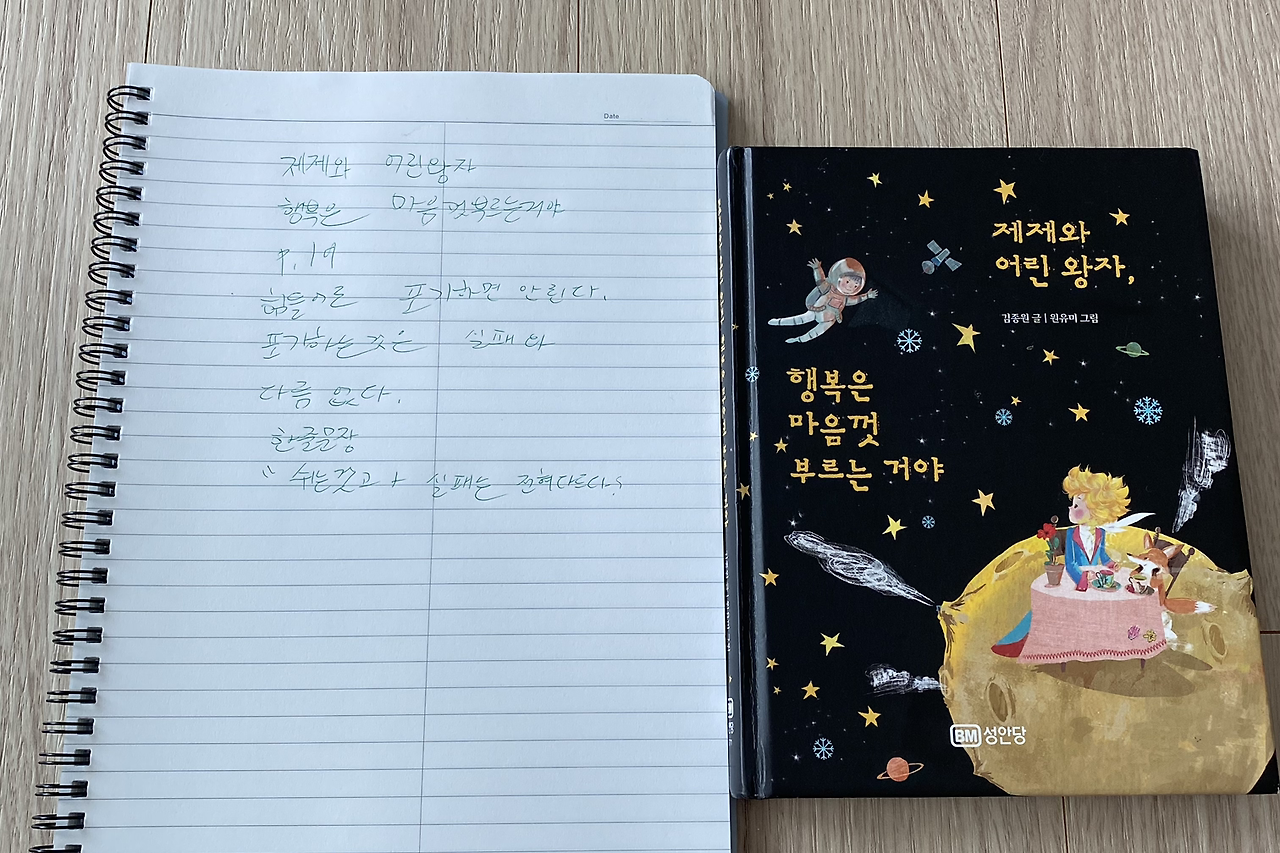 Date
제제와 어린왕자
행복은 마음껏부르는거야
P.19
힘들어론 포기하면 안된다.
포기하는것은 실패와
다름 없다.
한줄문장
“쉬는것과 실패는 전혀다르다.
제제와
어린 왕자,
김종원 글 | 원유미 그림
행복은
마음껏
부르는 거야
BM 성안당